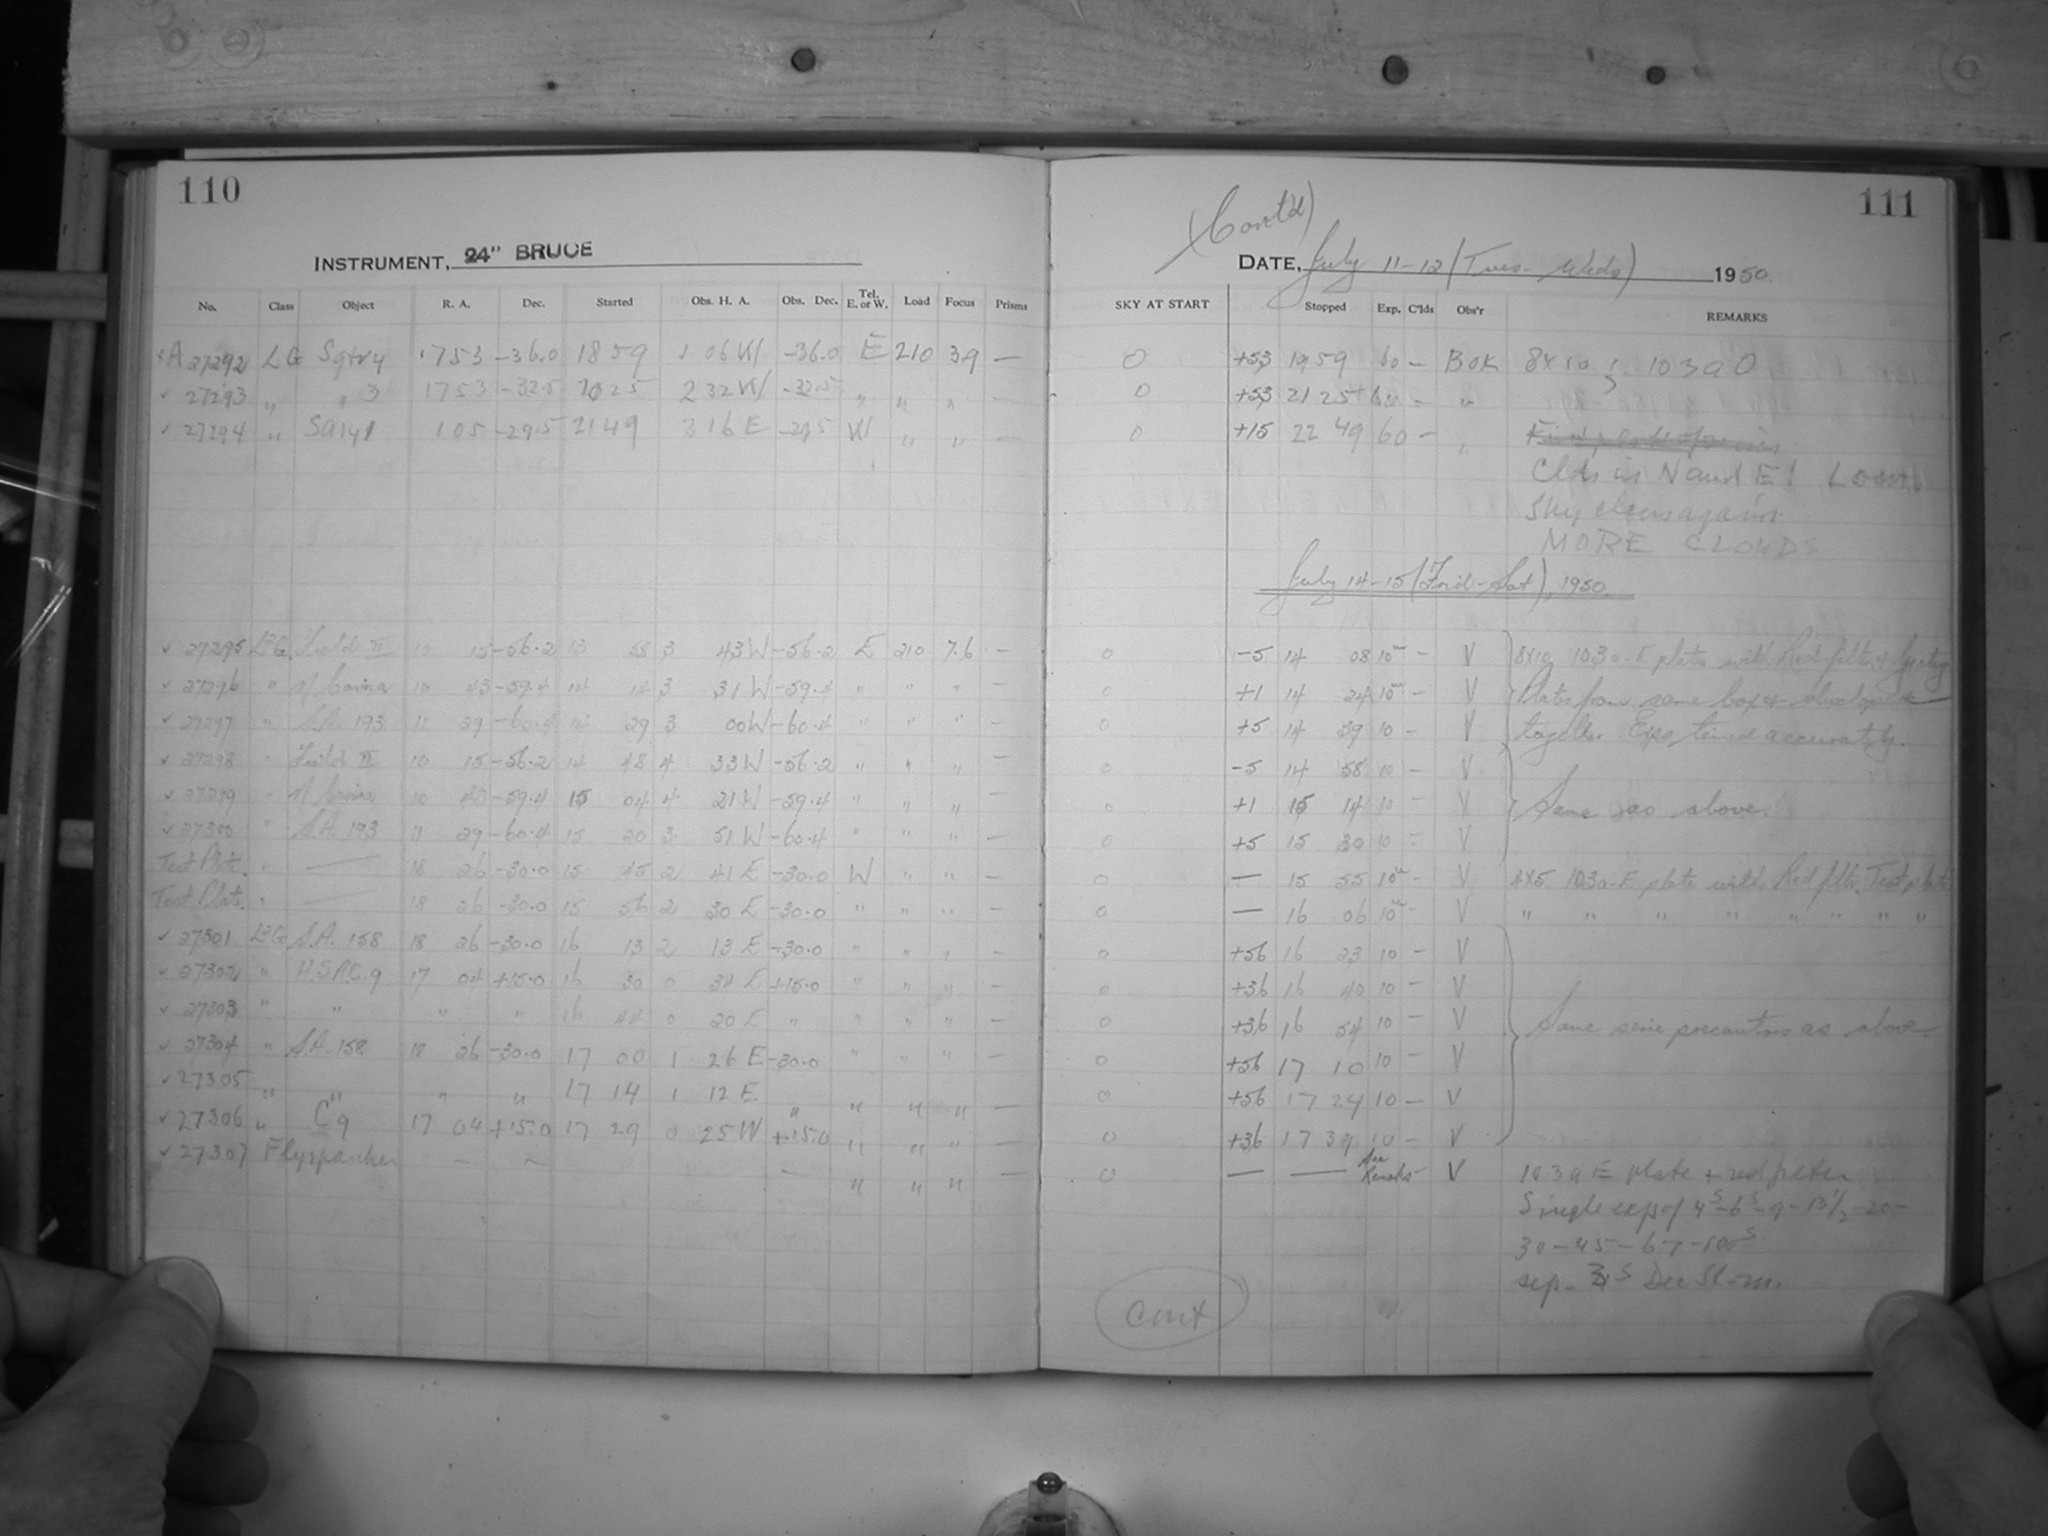 110
INSTRUMENT, 24" BRUCE
No. Class Object R. A. Dec. Started Obs. H. A. Obs. Dec. Tel. E. or W. Load Focus Prisms
A 27292 LG Sgtr 4 1753 -36.0 1859 1 06 W -36.0 E 210 39 —
✓ 27293 " " 3 1753 -32.5 2025 2 32 W -32.5 " " " —
✓ 27294 " SA 141 105 -29.5 2149 3 16 E -29.5 W " " —
✓ 27295 Field II 10 15 -56.2 13 58 3 43 W -56.2 E 210 7.6 —
✓ 27296 " η Carina 10 43 -59.4 14 14 3 31 W -59.4 " " " —
✓ 27297 " S.A. 193 11 29 -60.4 14 29 3 00 W -60.4 " " " —
✓ 27298 " Field II 10 15 -56.2 14 48 4 33 W -56.2 " " " —
✓ 27299 " η Carina 10 43 -59.4 15 04 4 21 W -59.4 " " " —
✓ 27300 " S.A. 193 11 29 -60.4 15 20 3 51 W -60.4 " " " —
Test Plate. " — 18 26 -30.0 15 45 2 41 E -30.0 W " " —
Test Plate. " — 18 26 -30.0 15 56 2 30 E -30.0 " " " —
✓ 27301 S.A. 158 18 26 -30.0 16 13 2 13 E -30.0 " " " —
✓ 27302 " 17 04 +15.0 16 30 0 34 E +15.0 " " " —
✓ 27303 " " " " 16 44 0 20 E " " " " —
✓ 27304 " S.A. 158 18 26 -30.0 17 00 1 26 E -30.0 " " " —
✓ 27305 " " " " 17 14 1 12 E " " " " —
✓ 27306 " C 9 17 04 +15.0 17 29 0 25 W +15.0 " " " —
✓ 27307 Flyspanker — — — " " " —
111
(Cont'd)
DATE, July 11-12 (Tues-Weds) 1950
SKY AT START Stopped Exp. C'lds Obs'r REMARKS
0 +53 19 59 60 — BOK 8x10; 103aO
0 +53 21 25 60 — "
0 +15 22 49 60 — "
Clds in N and E!
Sky clears again
MORE CLOUDS
July 14-15 (Frid-Sat), 1950.
0 -5 14 08 10m — V 8x10 103a-E plates with Red filter
0 +1 14 24 10m — V Plates from same box & developed
0 +5 14 39 10 — V together. Exps timed accurately.
0 -5 14 58 10 — V
0 +1 15 14 10 — V Same as above.
0 +5 15 30 10 — V
0 — 15 55 10m — V 4x5 103a-E plate with Red filter. Test plate
0 — 16 06 10m — V " " " " " " " "
0 +56 16 23 10 — V
0 +36 16 40 10 — V
0 +36 16 54 10 — V Same precautions as above.
0 +56 17 10 10 — V
0 +56 17 24 10 — V
0 +36 17 39 10 — V
0 — — See Remarks V 103aE plate + red filter
Single exps of 4s-6s-9-13½-20-
30-45-67-100s
sep.
cont